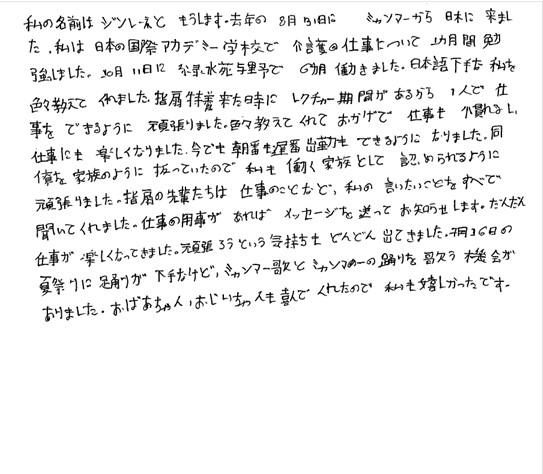 私の名前は ジンレーえと もうします.去年の 8月31日に ミャンマーから 日本に 来まし
た.私は 日本の国際アカデミー学校で 介護の仕事について 1カ月間 勉
強しました。10月11日に 与野で 6カ月 働きました.日本語下手な 私を
色々教えて くれました.指扇特養来た時に レクチャー期間があるから 1人で 仕
事を できるように 頑張りました.色々教えて くれて おかげで 仕事も 慣れよし,
仕事にも 楽しくなりました.今でも 朝番も遅番出勤も できるように なりました.同
僚を 家族のように 扱っていたので 私も 働く家族として 認められるように
頑張りました.指扇の先輩たちは 仕事のことなど,私の 言いたいことをすべて
聞いてくれました.仕事の用事が あれば メッセージを送って お知らせします.だんだん
仕事が 楽しくなってきました.頑張ろうという気持ちも どんどん 出てきました.7月16日の
夏祭りに 踊りが 下手なけど,ミャンマー歌と ミャンマーの 踊りを 歌う 機会が
ありました.おばあちゃん,おじいちゃんも 喜んで くれたので 私も 嬉しかったです.